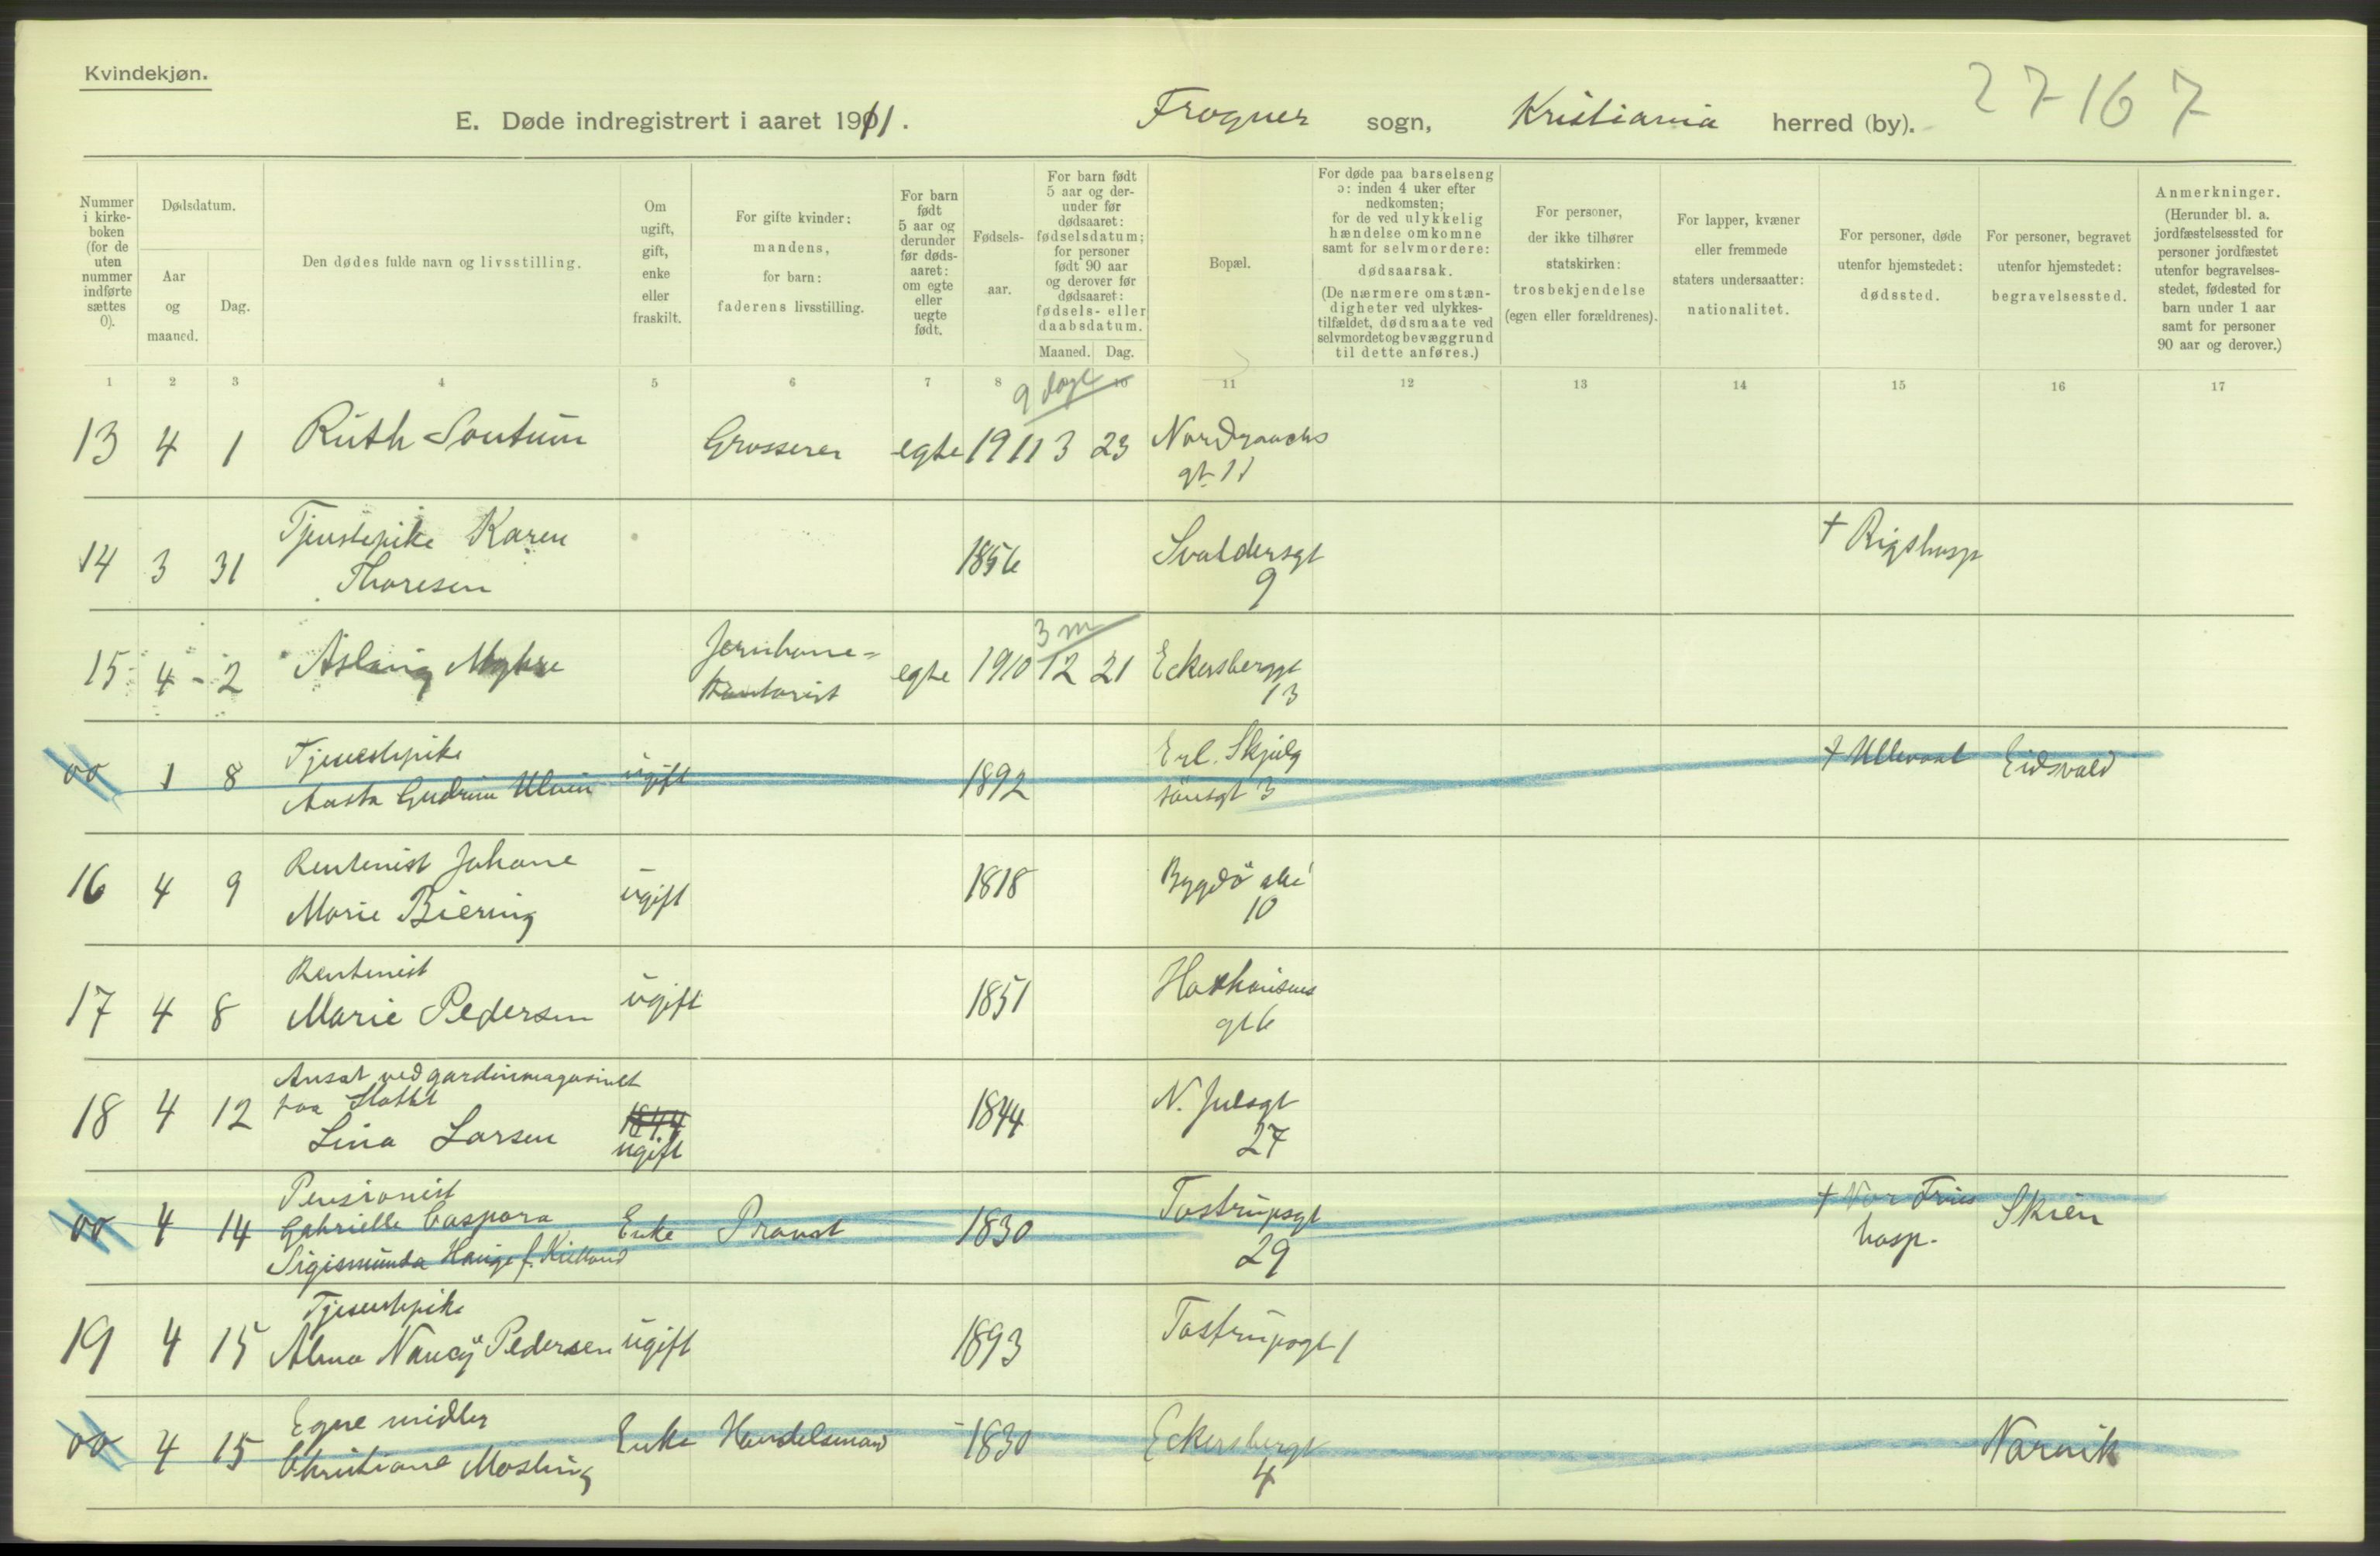 Kvindekjøn.
E. Døde indregistrert i aaret 1911. Frogner sogn, Kristiania herred (by). 27167
Nummer i kirke-boken (for de uten nummer indførte sættes 0).
Dødsdatum.
Aar og maaned.
Dag.
Den dødes fulde navn og livsstilling.
Om ugift, gift, enke eller fraskilt.
For gifte kvinder: mandens, for barn: faderens livsstilling.
For barn født 5 aar og derunder før døds-aaret: om egte eller uegte født.
Fødsels-aar.
For barn født 5 aar og der-under før dødsaaret: fødselsdatum; for personer født 90 aar og derover før dødsaaret: fødsels- eller daabsdatum.
Maaned. Dag.
Bopæl.
For døde paa barselseng ɔ: inden 4 uker efter nedkomsten; for de ved ulykkelig hændelse omkomne samt for selvmordere: dødsaarsak. (De nærmere omstæn-digheter ved ulykkes-tilfældet, dødsmaate ved selvmordet og bevæggrund til dette anføres.)
For personer, der ikke tilhører statskirken: trosbekjendelse (egen eller forældrenes).
For lapper, kvæner eller fremmede staters undersaatter: nationalitet.
For personer, døde utenfor hjemstedet: dødssted.
For personer, begravet utenfor hjemstedet: begravelsessted.
Anmerkninger. (Herunder bl. a. jordfæstelsessted for personer jordfæstet utenfor begravelses-stedet, fødested for barn under 1 aar samt for personer 90 aar og derover.)
1 2 3 4 5 6 7 8 10 11 12 13 14 15 16 17
9 dage
13 4 1 Ruth Soutum Grosserer egte 1911 3 23 Nordraachs
gt. 11
14 3 31 Tjenstepike Karen
Thoresen 1856 Svoldersgt
9 † Rigshosp
3 m
15 4 - 2 Aslaug Myhre Jernbane=
kontorist egte 1910 12 21 Eckersberggt
13
00 1 8 Tjenestepike
Aasta Gudrun Ulvin ugift 1892 Erl. Skjalg
sønsgt 3 † Ullevaal Eidsvold
16 4 9 Rentenist Johane
Marie Biering ugift 1818 Bygdö alle
10
17 4 8 Rentenist
Marie Pedersen ugift 1851 Haxthausens
gt 6
18 4 12 Ansat ved gardinmagasinet
paa Slottet
Lina Larsen 1844
ugift 1844 N. Julsgt
27
00 4 14 Pensionist
Gabrielle Caspara
Sigismunda Hauge f. Kielland Enke Provst 1830 Tostrupsgt
29 † Vor Frues
hosp. Skien
19 4 15 Tjenestepike
Alma Nancy Pedersen ugift 1893 Tostrupsgt 1
00 4 15 Egne midler
Christiane Mosling Enke Handelsmand 1830 Eckersbergt
4 Narvik